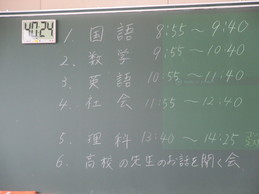 40:24
1. 国語 8:55～9:40
2. 数学 9:55～10:40
3. 英語 10:55～11:40
4. 社会 11:55～12:40
5. 理科 13:40～14:25
6. 高校の先生のお話を聞く会